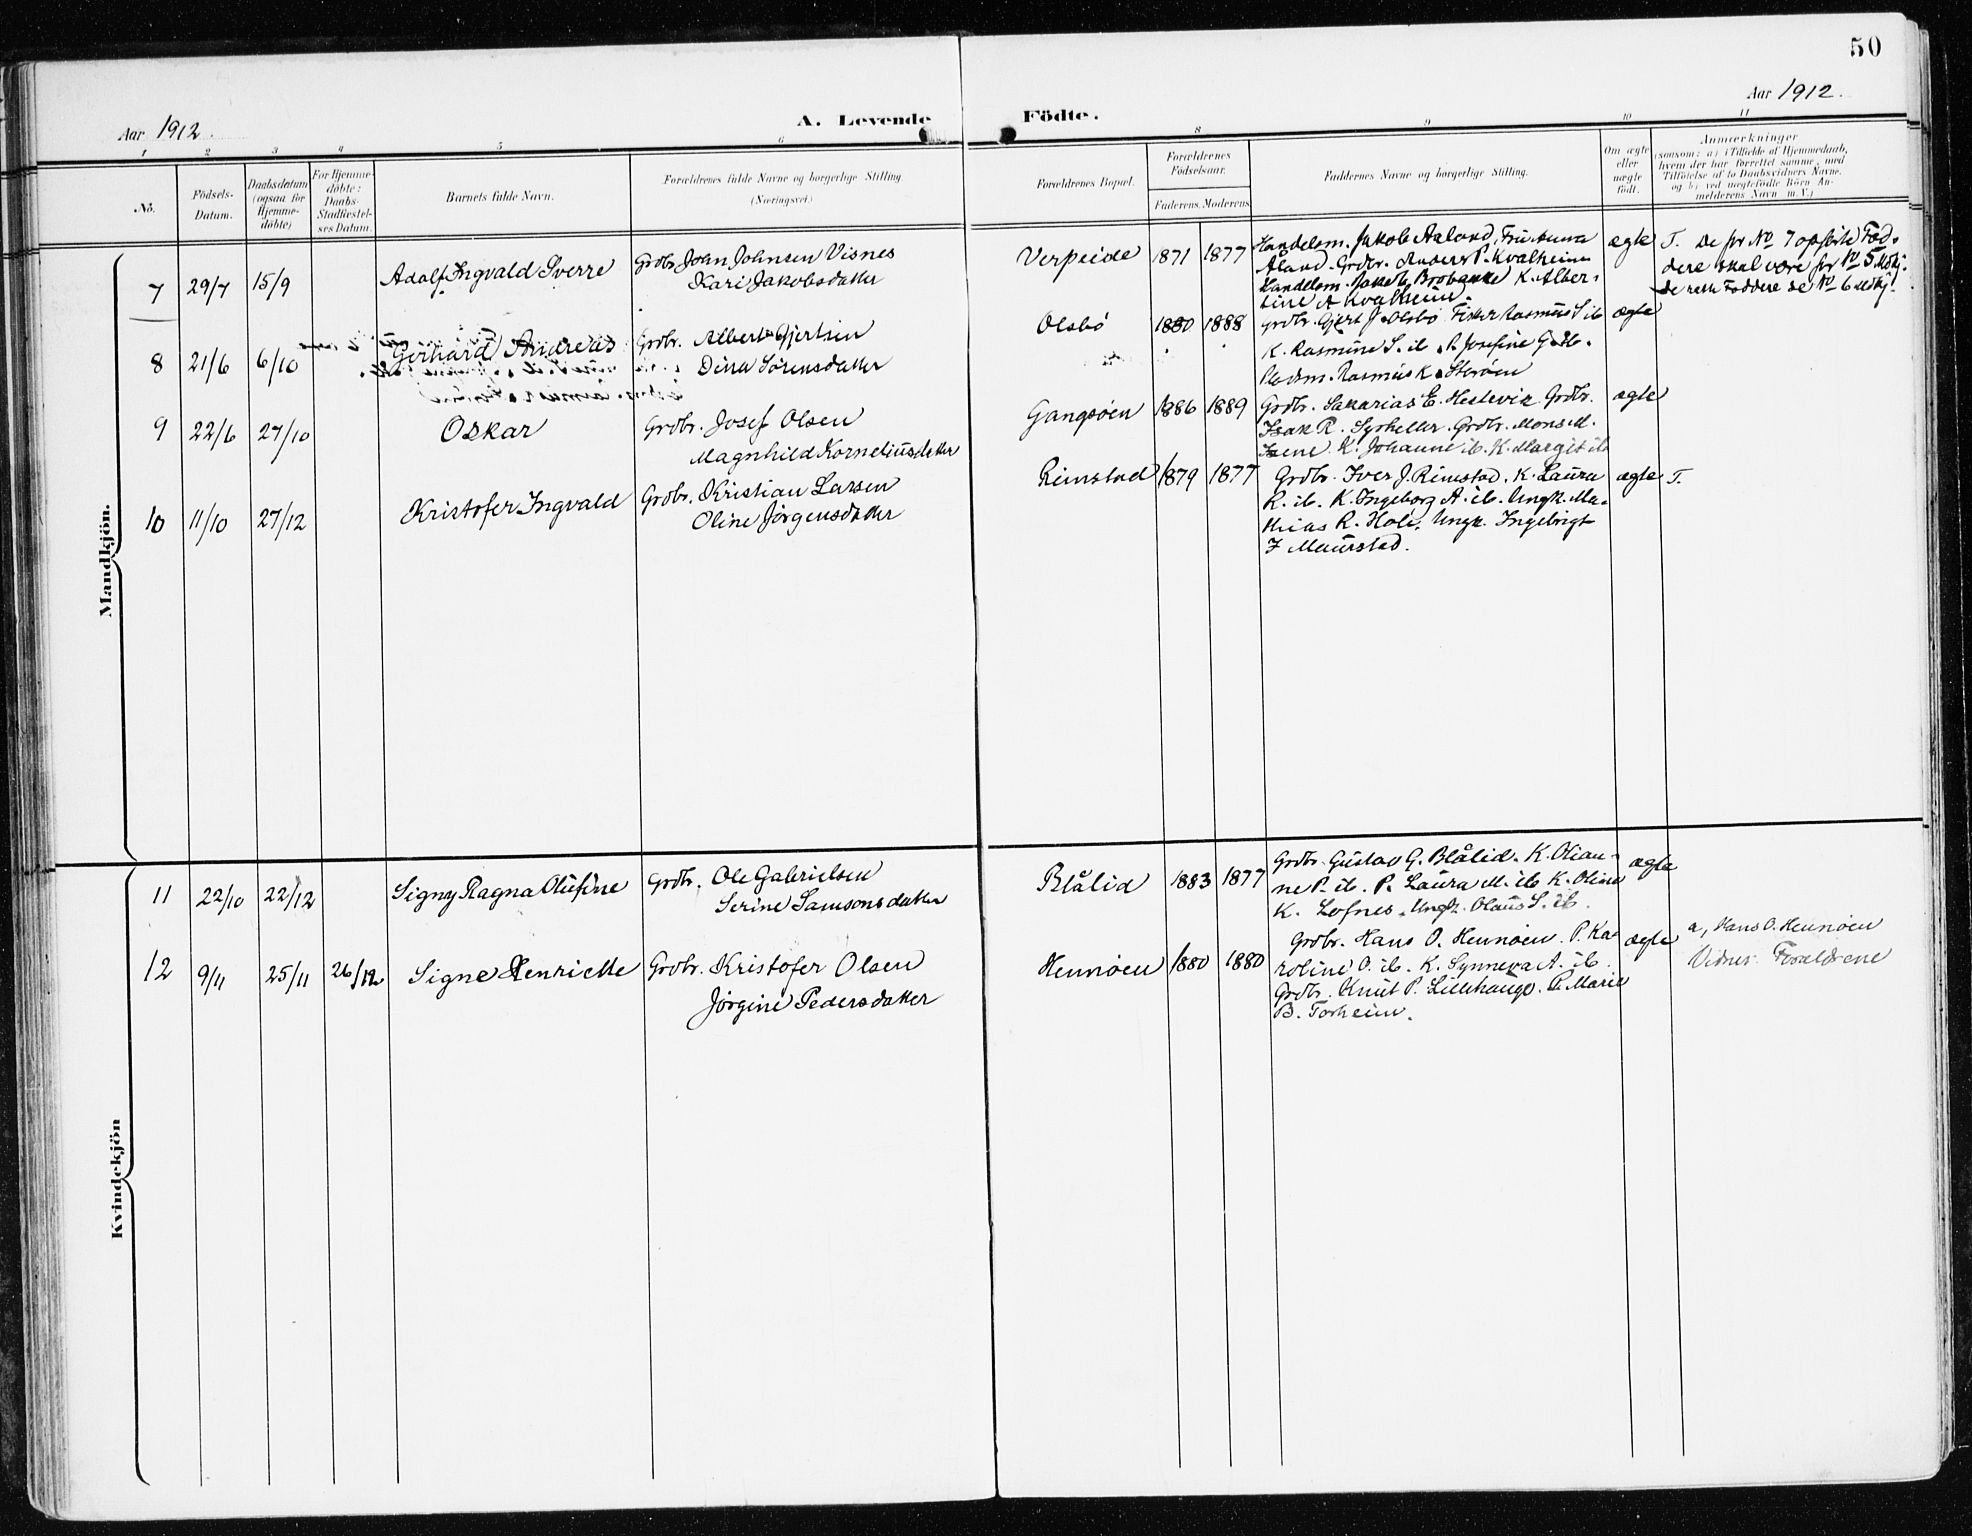 50
Aar 1912.
Aar 1912.
A. Levende
Födte.
1 2 3 4 5 6 8 9 10 11
No.
Födsels-
Datum.
Daabsdatum
(ogsaa for
Hjemme-
döbte)
For Hjemme-
döbte:
Daabs-
Stadfæstel-
ses Datum.
Barnets fulde Navn.
Forældrenes fulde Navne og borgerlige Stilling.
(Næringsvei.)
Forældrenes Bopæl.
Forældrenes
Födselsaar.
Faderens. Moderens.
Faddernes Navne og borgerlige Stilling.
Om ægte
eller
uægte
födt.
Anmærkninger
(saasom: a) i Tilfælde af Hjemmedaab,
hvem der har forrettet samme, med
Tilföielse af to Daabsvidners Navne.
og b) ved uægtefödte Börn An-
melderens Navn m. V.)
Mandkjön.
7 29/7 15/9 Adolf Ingvald Sverre Grdbr. Johan Johnsen Visnes
Kari Jakobsdatter
Verpeide 1871 1877 Handelsm. Jakob Aaland, Fru Anna
Åland. Grdbr. Anders P. Kvalheim
Handelsm. Jakob Brobakke K. Alber-
tine A Kvalheim.
ægte T. De for No 7 opførte Fad-
dere skal være for No 5 Mdkj.
De rette Faddere se No 6 Mdkj.
8 21/6 6/10 Gerhard Andreas Grdbr. Albert Gjertsen
Dina Sørensdatter
Olsbø 1880 1888 Grdbr. Gjert J. Olsbø Fisker Rasmus S ib
K. Rasmine S. ib. P. Josefine G. ib.
Pladsm. Rasmus K. Sterøen
ægte
9 22/6 27/10 Oskar Grdbr. Josef Olsen
Magnhild Korneliusdatter
Gangsøen 1886 1889 Grdbr. Sakarias E. Hestevik Grdbr.
Isak R. Grdbr. Mons M.
K. Johanne ib. K. Margit ib
ægte
10 11/10 27/12 Kristofer Ingvald Grdbr. Kristian Larsen
Oline Jørgensdatter
Rimstad 1879 1877 Grdbr. Iver J. Rimstad. K. Laura
R. ib. K. Ingeborg A. ib. Ungk. Ma-
thias R. Hole, Ungk. Ingebrigt
I Maurstad.
ægte T.
Kvindekjön
11 22/10 22/12 Signy Ragna Olufine Grdbr. Ole Gabrielsen
Serine Samsonsdatter
Blålid 1883 1877 Grdbr. Gustav G. Blålid. K. Olian-
ne P. ib. P. Laura M. ib K. Olina
K. Lofnes. Ungk. Olaus S. ib.
ægte
12 9/11 25/11 26/12 Signe Henriette Grdbr. Kristofer Olsen
Jørgine Pedersdatter
Hennøen 1880 1880 Grdbr. Hans O. Hennøen. P. Ka-
roline O. ib. K. Synneva A. ib.
Grdbr. Knut P. Lillehauge. P. Marie
B. Torheim.
ægte a, Hans O. Hennøen
Vidner Forældrene